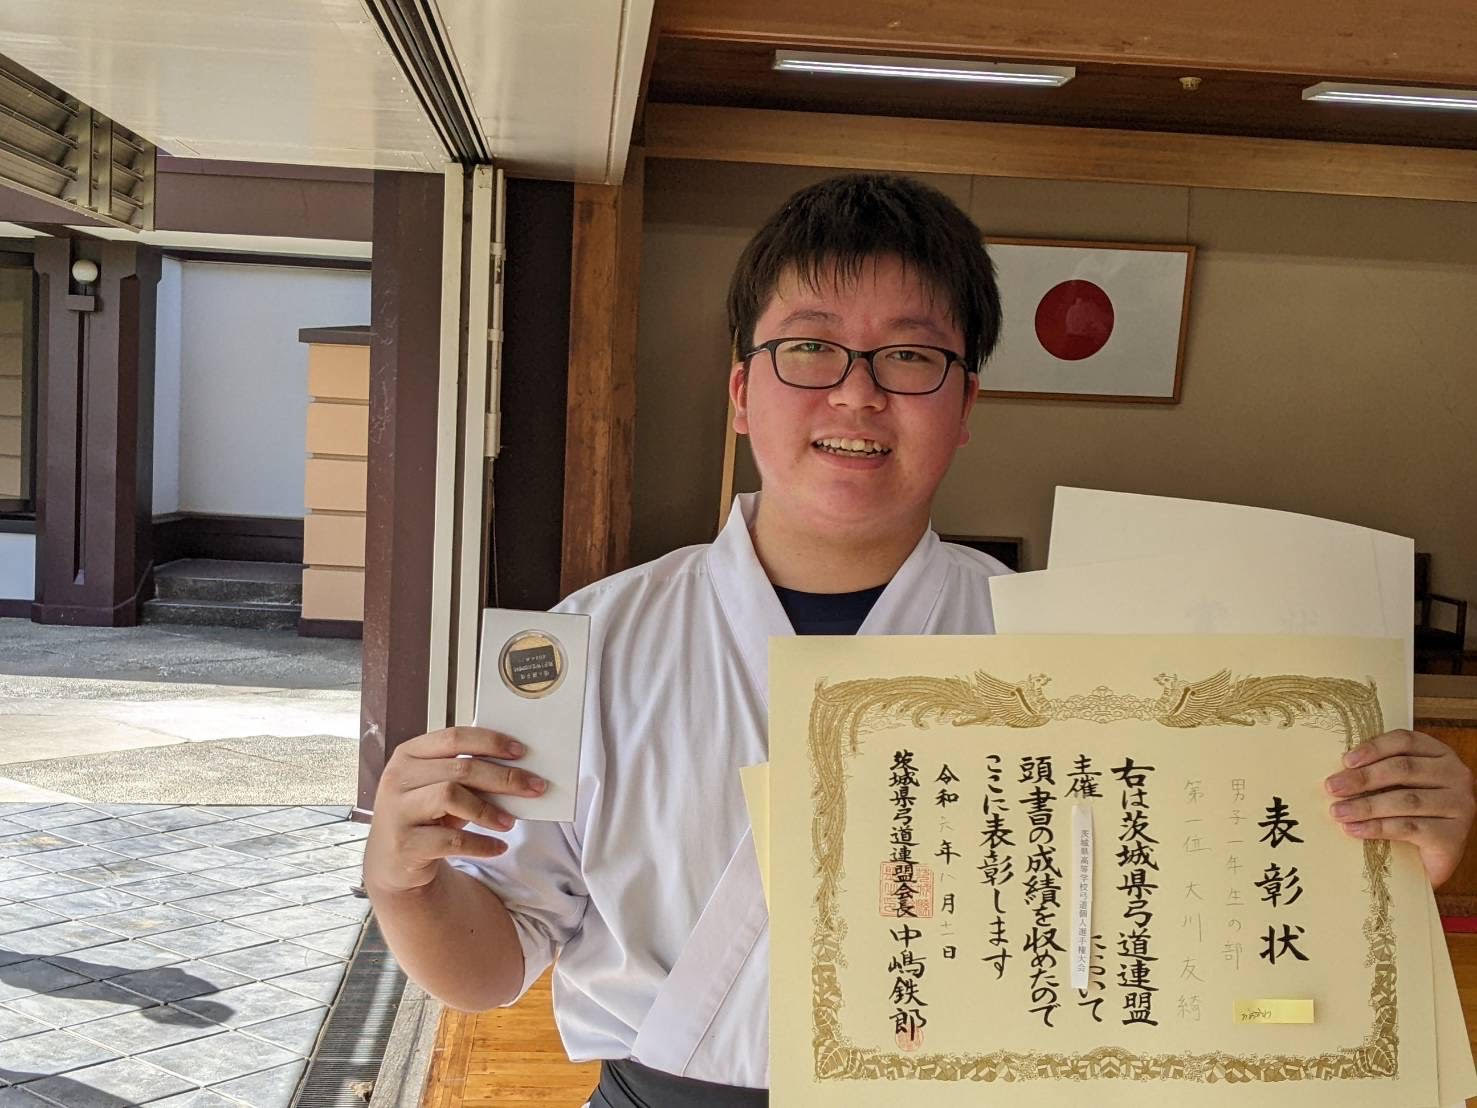 表彰状
男子一年生の部
第一位 大川友綺
右は茨城県弓道連盟
主催 茨城県高等学校弓道個人選手権大会 において
頭書の成績を収めたので
ここに表彰します
令和六年八月十一日
茨城県弓道連盟会長 中嶋鉄郎